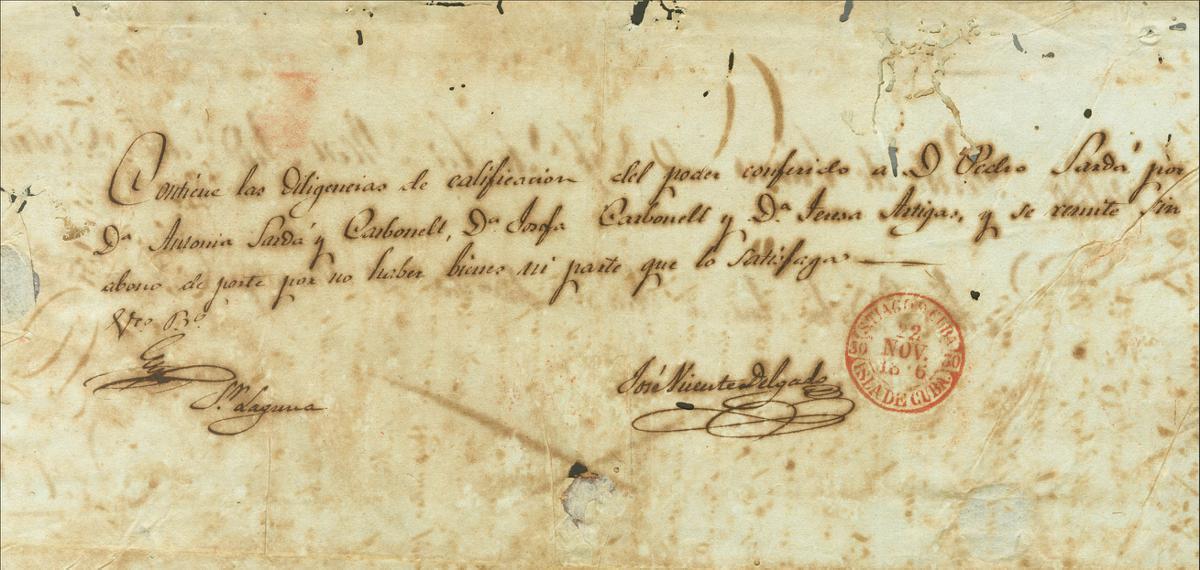 Contiene las diligencias de calificacion del poder conferido a D Pedro Sardá por
Dª Antonia Sardá y Carbonell, Dª Josefa Carbonell y Dª Teresa Artigas, y se remite sin
abono de porte por no haber bienes ni parte que lo satisfaga
Vto Bº
Laguna
José Vicente Delgado
STIAGO D CUBA
22
NOV.
30
30
ISLA DE CUBA